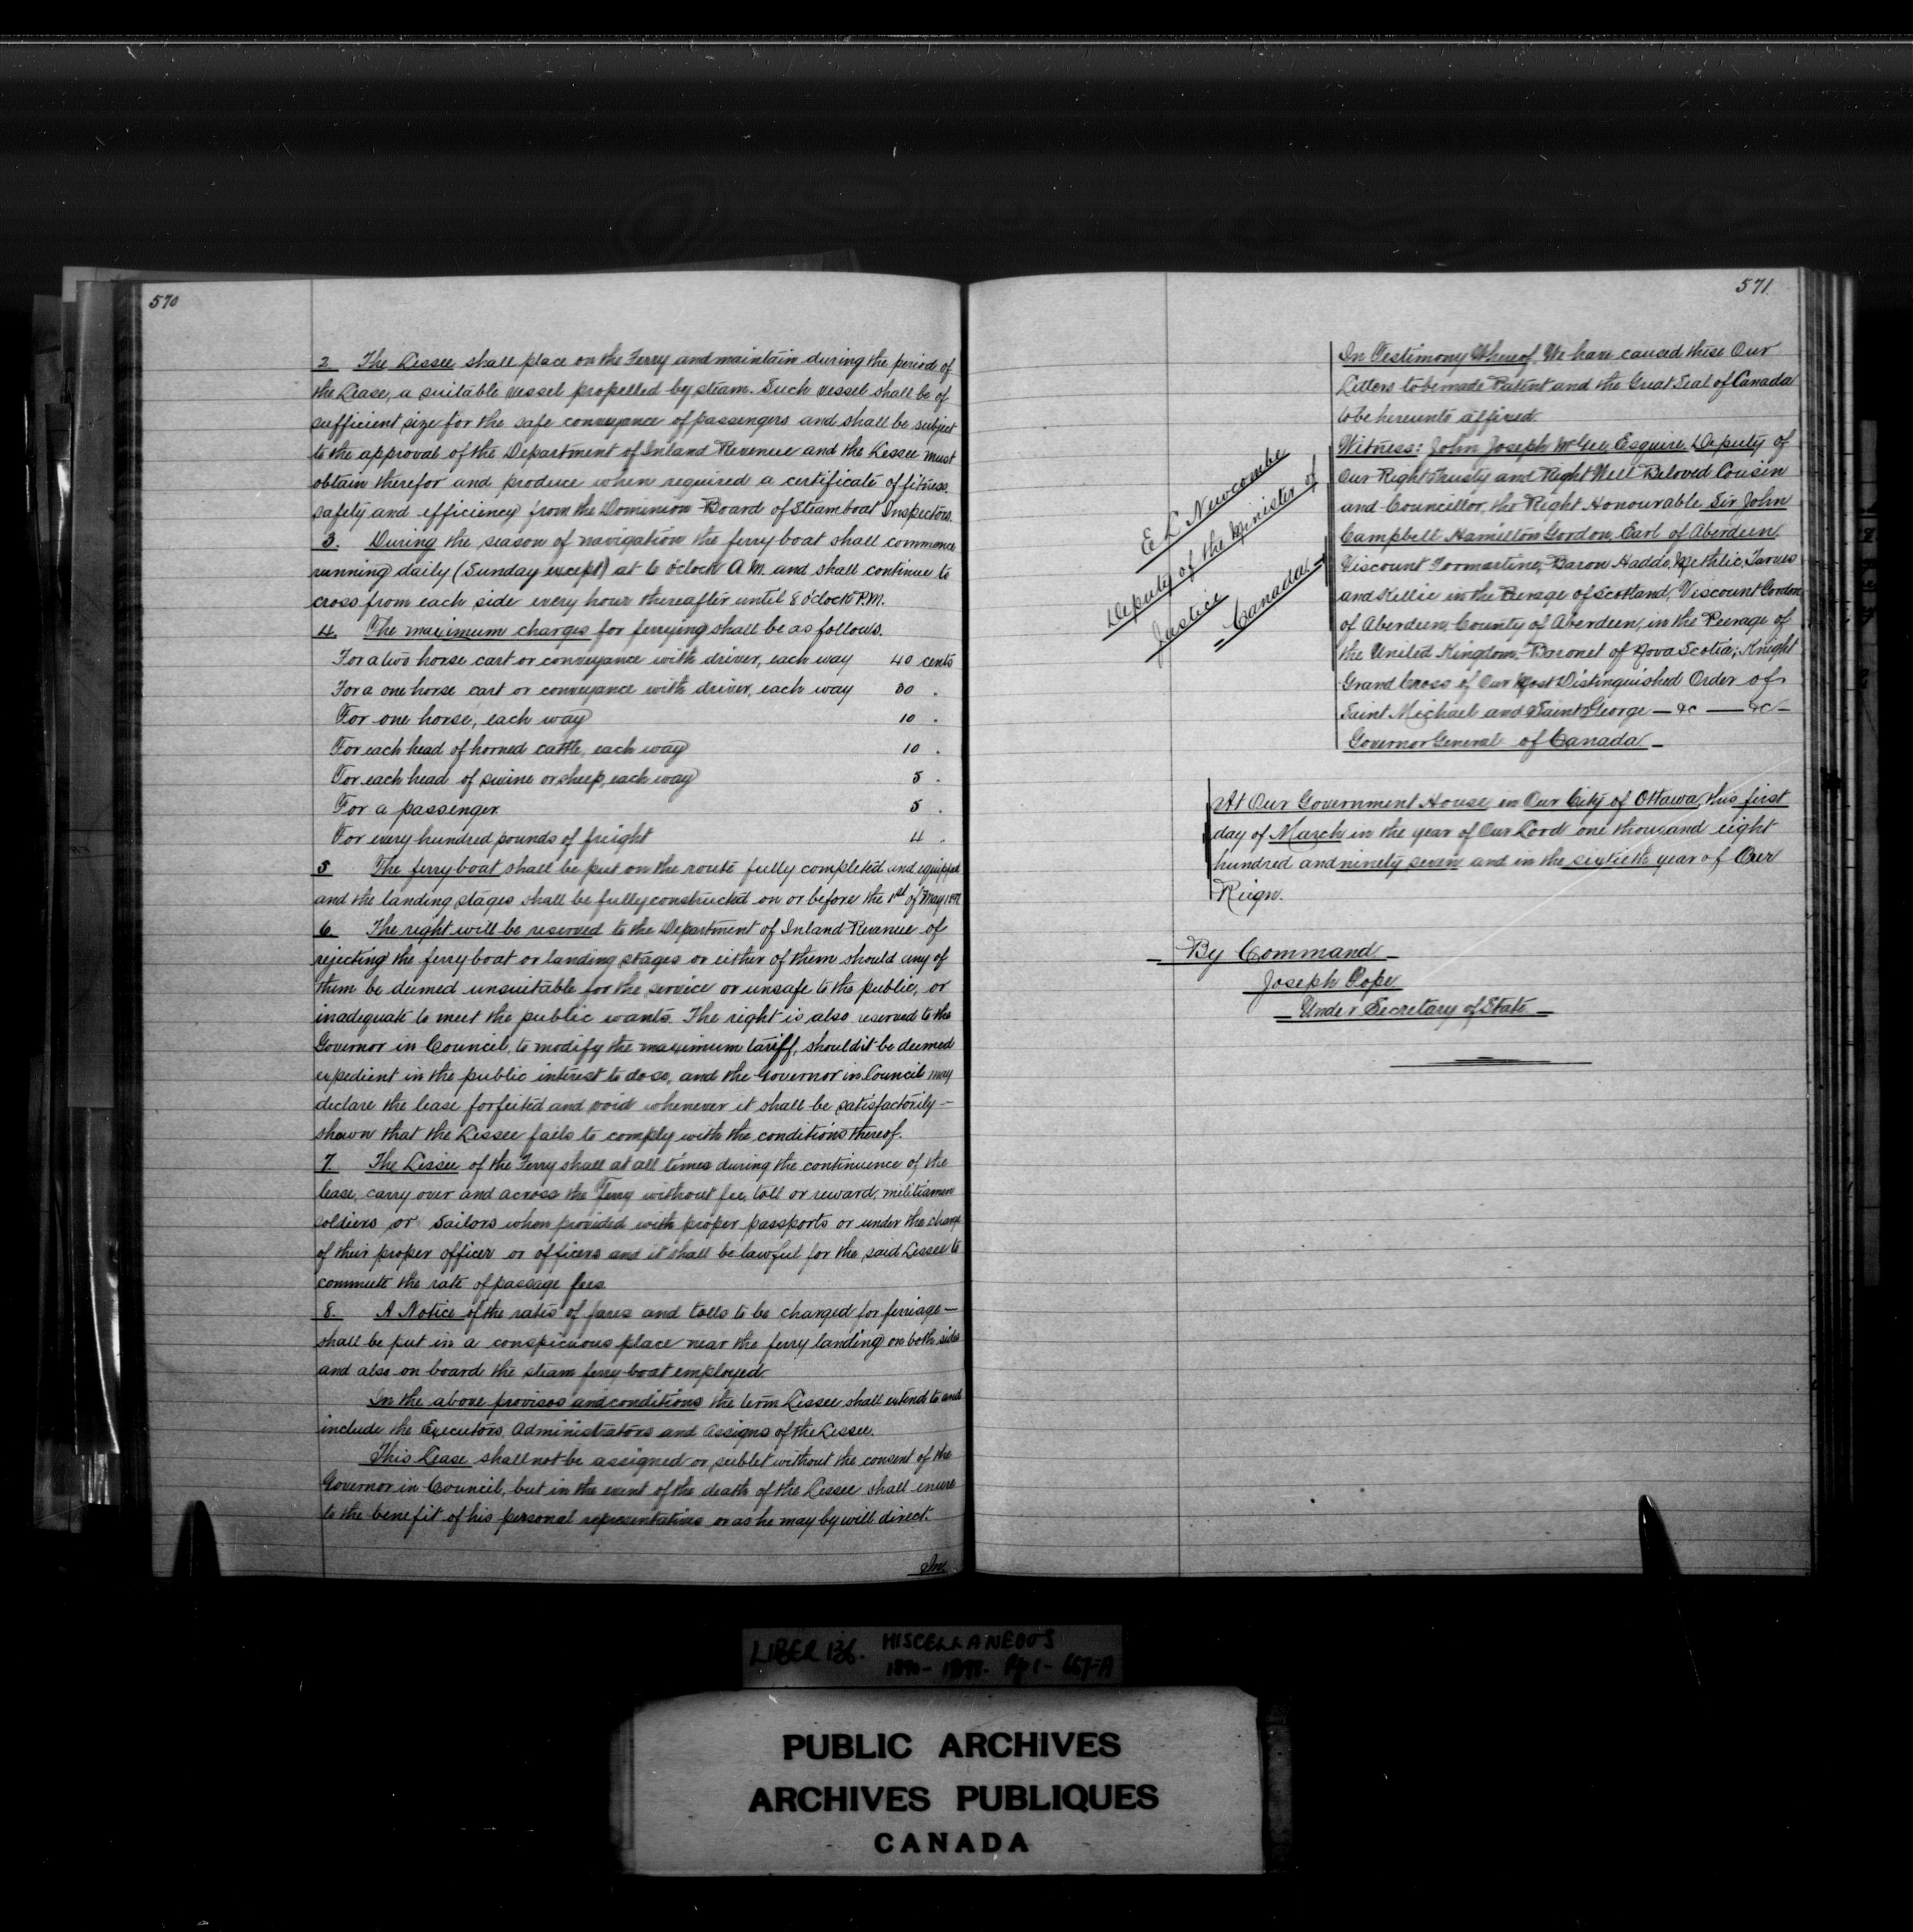 570
2 The Lessee shall place on the Ferry and maintain during the period of
the Lease, a suitable vessel propelled by steam. Such vessel shall be of
sufficient size for the safe conveyance of passengers and shall be subject
to the approval of the Department of Inland Revenue and the Lessee must
obtain therefor and produce when required a certificate of fitness,
safety and efficiency from the Dominion Board of Steamboat Inspectors.
3. During the season of navigation the ferry boat shall commence
running daily (Sunday except) at 6 o'clock A.M. and shall continue to
cross from each side every hour thereafter until 8 o'clock P.M.
4. The maximum charges for ferrying shall be as follows.
For a two horse cart or conveyance with driver, each way 40 cents
For a one horse cart or conveyance with driver, each way 30 "
For one horse, each way 10 "
For each head of horned cattle, each way 10 "
For each head of swine or sheep, each way 5 "
For a passenger 5 "
For every hundred pounds of freight 4 "
5 The ferry boat shall be put on the route fully completed and equipped
and the landing stages shall be fully constructed on or before the 1st of May 1897.
6. The right will be reserved to the Department of Inland Revenue of
rejecting the ferry boat or landing stages or either of them should any of
them be deemed unsuitable for the service or unsafe to the public, or
inadequate to meet the public wants. The right is also reserved to the
Governor in Council, to modify the maximum tariff, should it be deemed
expedient in the public interest to do so, and the Governor in Council may
declare the lease forfeited and void whenever it shall be satisfactorily –
shown that the Lessee fails to comply with the conditions thereof.
7. The Lessee of the Ferry shall at all times during the continuence of the
lease, carry over and across the Ferry without fee, toll or reward, militiamen
soldiers or Sailors when provided with proper passports or under the charge
of their proper officer or officers and it shall be lawful for the said Lessee to
commute the rate of passage fees
8. A Notice of the rates of fares and tolls to be charged for ferriage –
shall be put in a conspicuous place near the ferry landing on both sides
and also on board the steam ferry boat employed.
In the above provisos and conditions the term Lessee shall extend to and
include the Executors, Administrators and Assigns of the Lessee.
This Lease shall not be assigned or sublet without the consent of the
Governor in Council, but in the event of the death of the Lessee shall enure
to the benefit of his personal representatives or as he may by will direct.
In
571
In Testimony Whereof, We have caused these Our
Letters to be made Patent and the Great Seal of Canada
to be hereunto affixed.
Witness: John Joseph McGee, Esquire, Deputy of
Our Right Trusty and Right Well Beloved Cousin
and Councillor, the Right Honourable Sir John
Campbell Hamilton Gordon, Earl of Aberdeen,
Viscount Formartine, Baron Haddo, Methlic, Tarves
and Kellie in the Peerage of Scotland, Viscount Gordon
of Aberdeen, County of Aberdeen, in the Peerage of
the United Kingdom, Baronet of Nova Scotia; Knight
Grand Cross of Our Most Distinguished Order of
Saint Michael and Saint George – &c – &c –
Governor General of Canada –
E L Newcombe
Deputy of the Minister of
Justice
Canada
At Our Government House, in Our City of Ottawa, this first
day of March in the year of Our Lord one thousand eight
hundred and ninety seven and in the sixtieth year of Our
Reign.
By Command –
Joseph Pope
Under Secretary of State –
LIBER 136. MISCELLANEOUS
PUBLIC ARCHIVES
ARCHIVES PUBLIQUES
CANADA